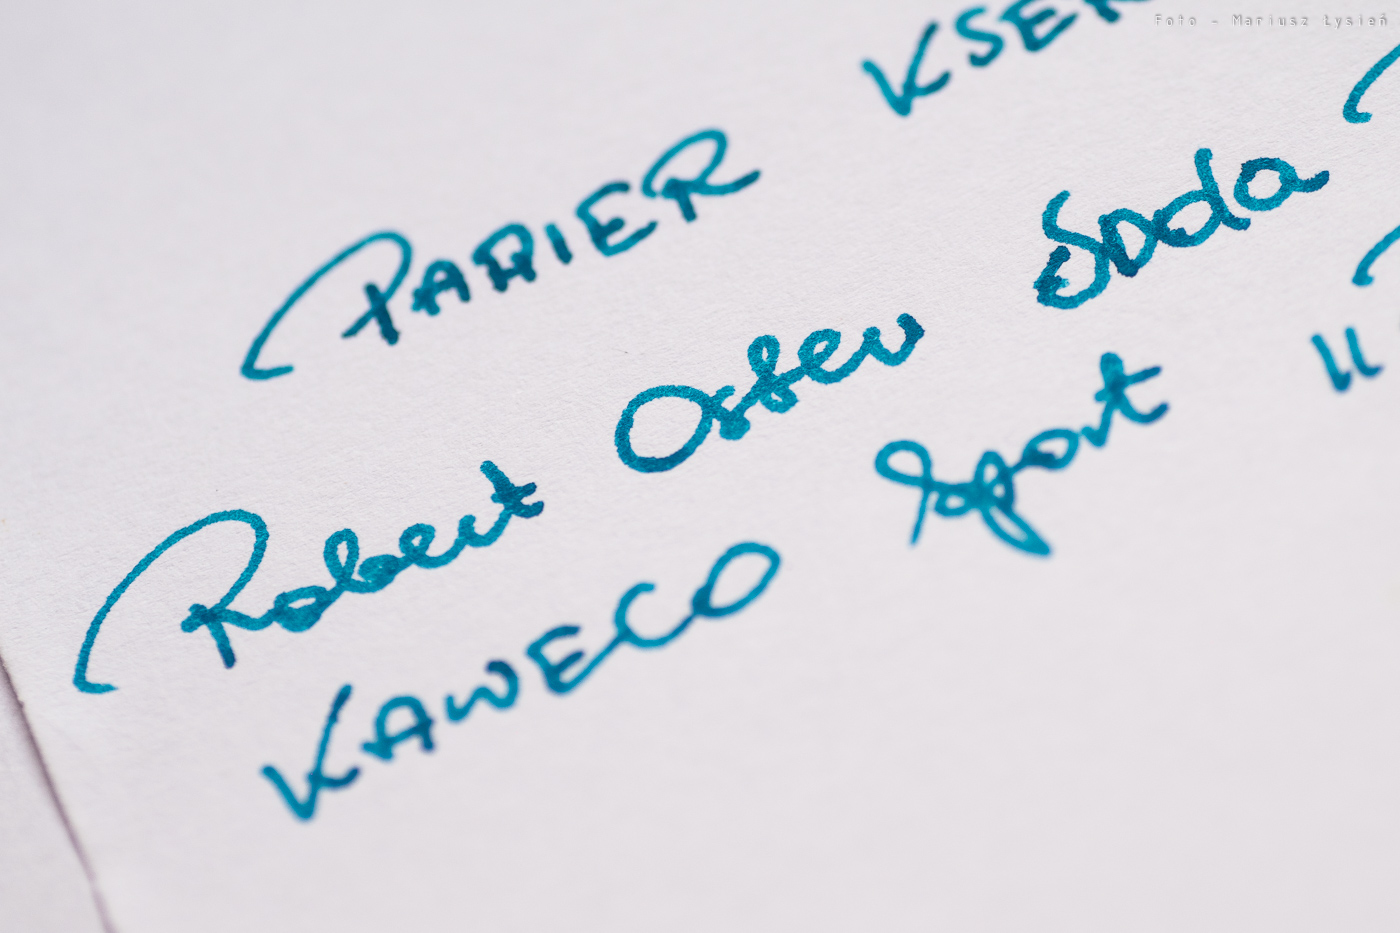 Foto - Mariusz Łysień
PAPIER KSER
Robert Oster Soda
KAWECO Sport "